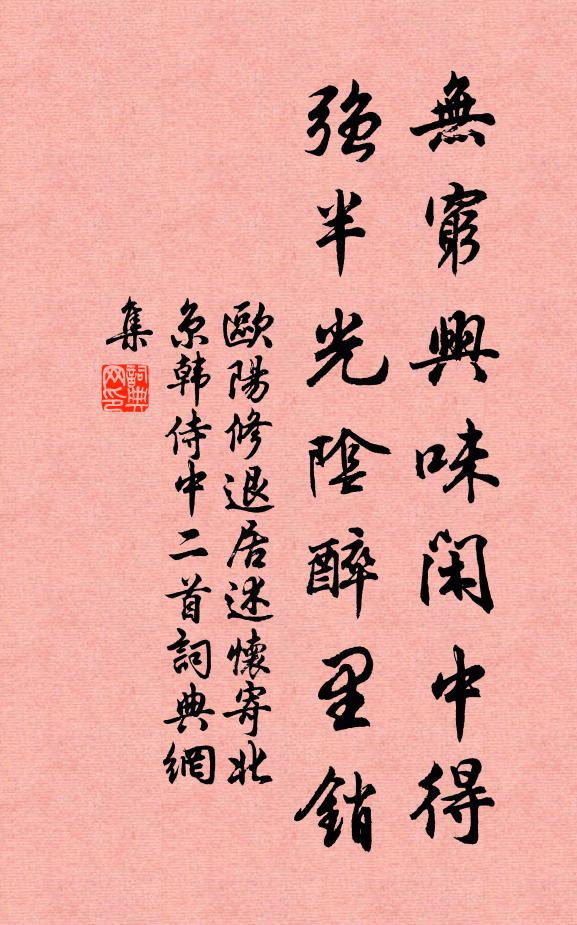 無窮興味閑中得
強半光陰醉里銷
歐陽修退居述懷寄北
京韩侍中二首詞典網
集
詞典
网印